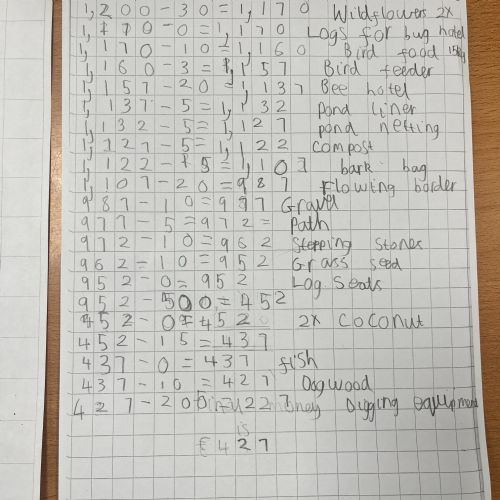 1,200-30=1,170 Wildflowers 2x
1,170-0=1,170 Logs for bug hotel
1,170-10=1,160 Bird food 15kg
1,160-3=1,157 Bird feeder
1,157-20=1,137 Bee hotel
1,137-5=1,132 Pond liner
1,132-5=1,127 pond netting
1,127-5=1,122 compost
1,122-15=1,107 bark bag
1,107-20=987 flowing border
987-10=977 Gravel
977-5=972= Path
972-10=962 Stepping stones
962=10=952 Grass seed
952-0=952 Log Seats
952-500=452
452-0=452 2x coconut
452-15=437
437-0=437 fish
437-10=427 Dogwood
427-200=227 money Digging equipment
is
€427